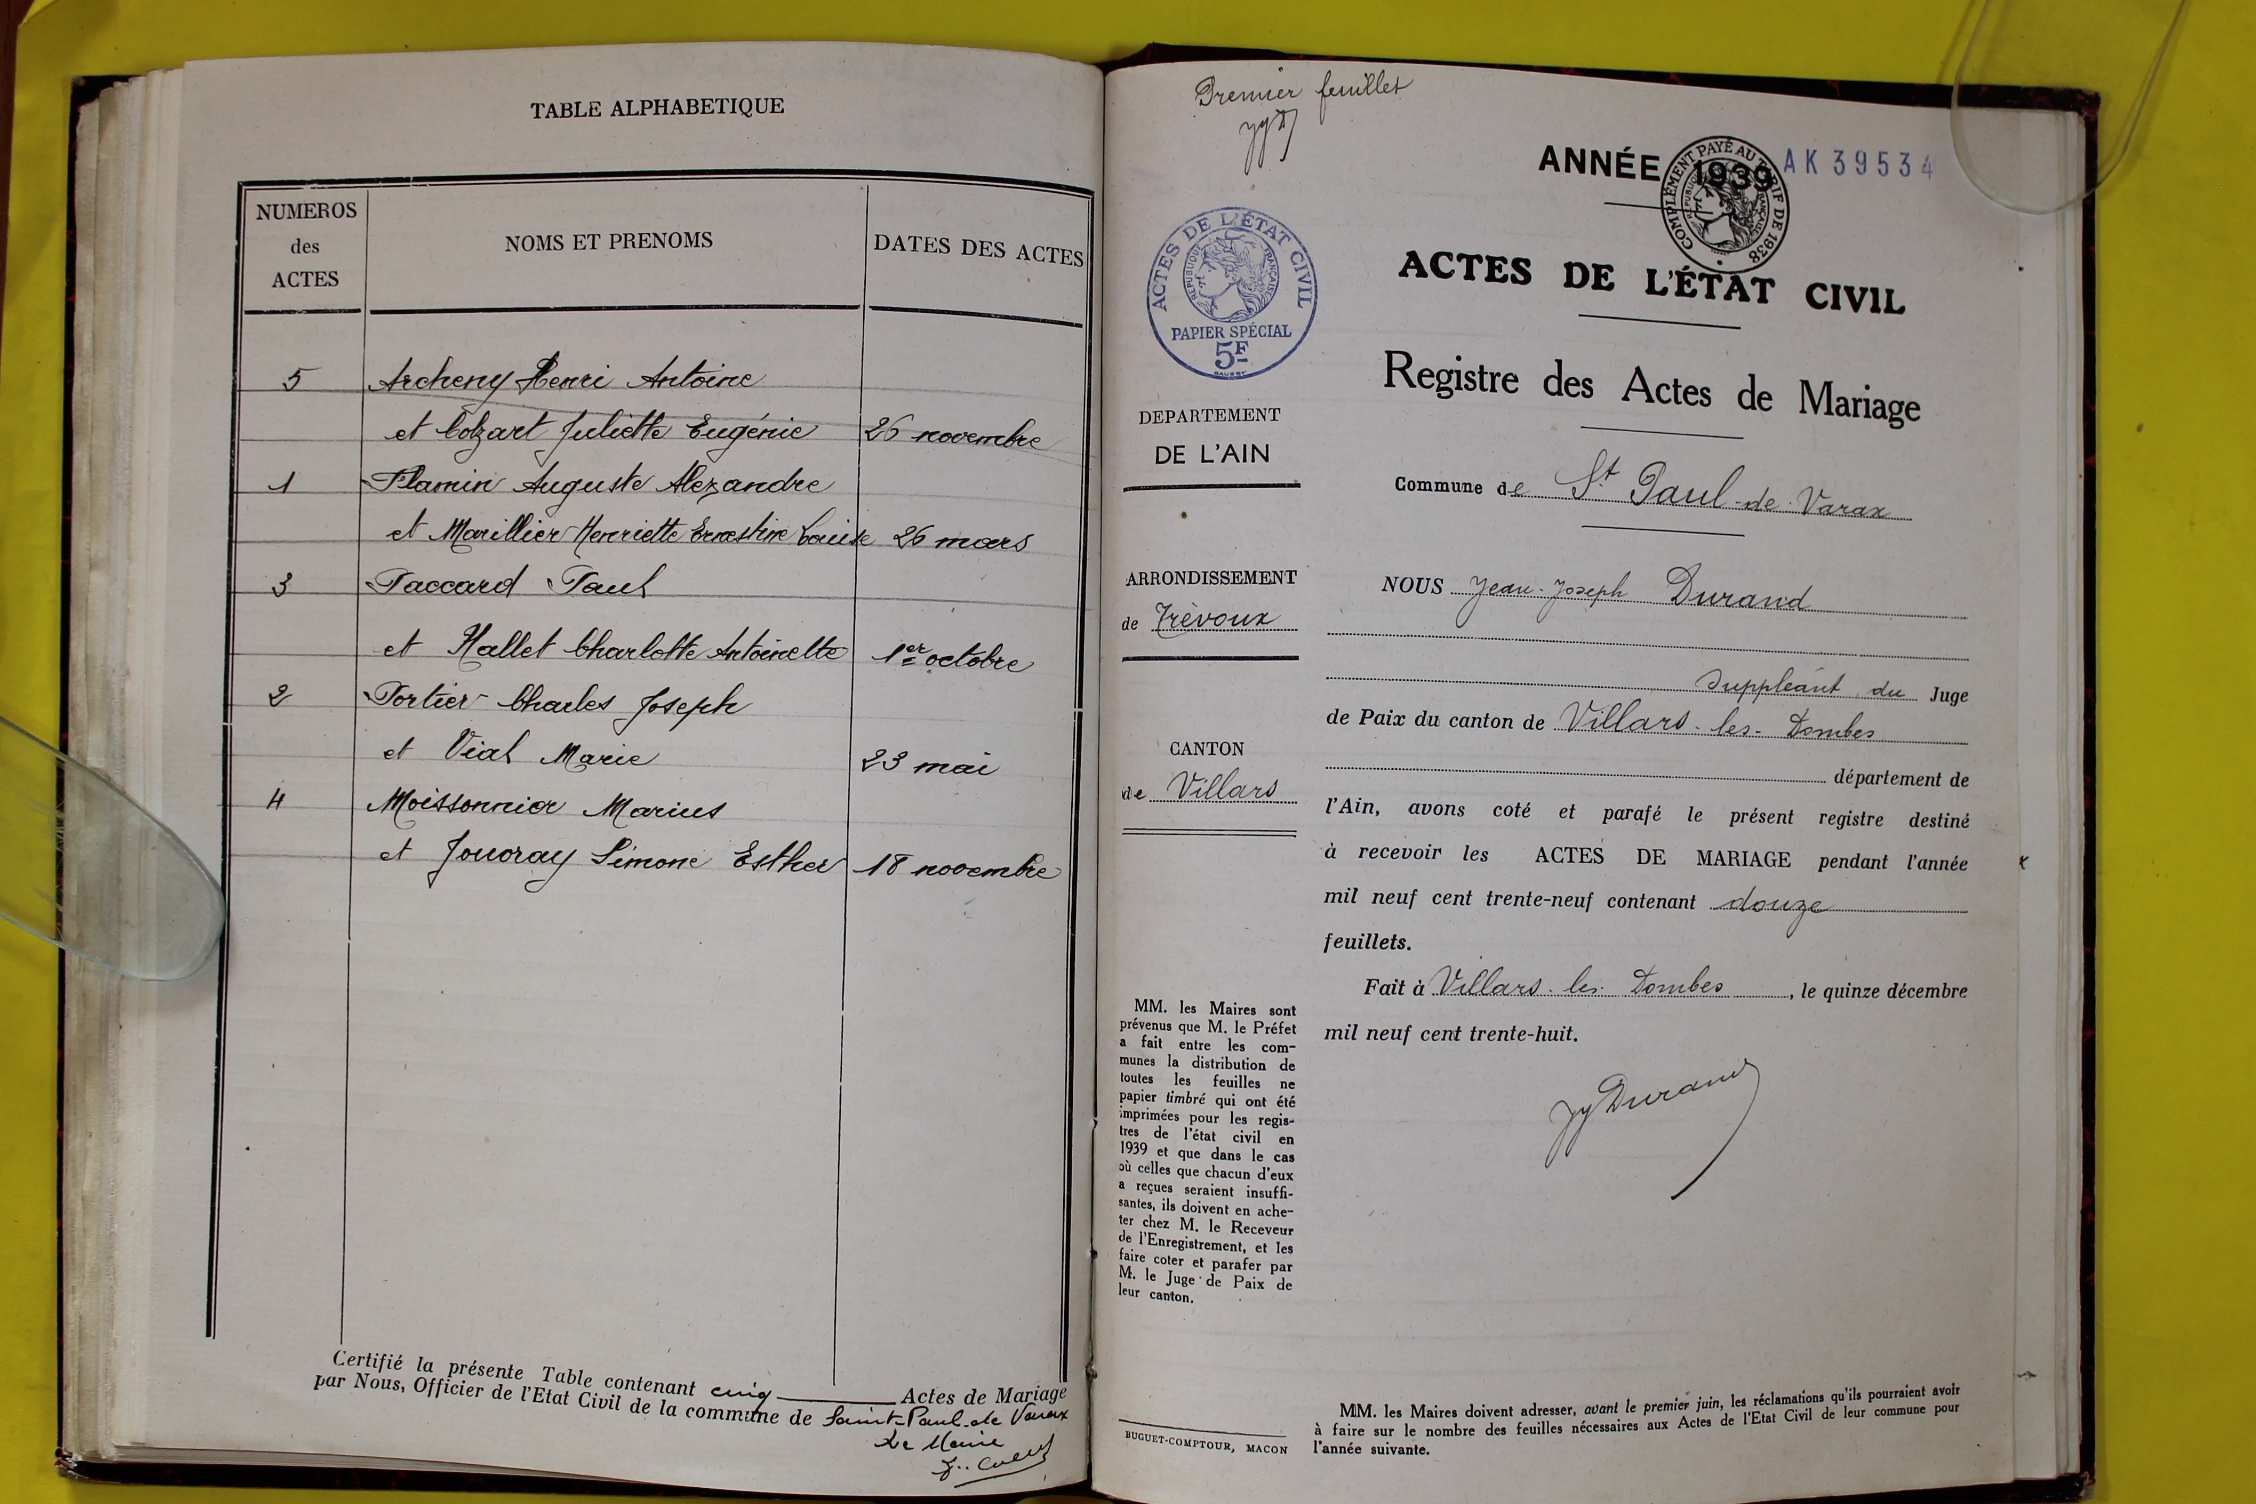 TABLE ALPHABETIQUE
NUMEROS
des
ACTES
NOMS ET PRENOMS
DATES DES ACTES
5 Archeny Henri Antoine
et Colzart Juliette Eugénie 26 novembre
1 Flamin Auguste Alexandre
et Marillier Henriette Ernestine Louise 26 mars
3 Paccard Paul
et Hallet Charlotte Antoinette 1er octobre
2 Portier Charles Joseph
et Vial Marie 23 mai
4 Moissonnier Marius
et Jouvray Simone Esther 18 novembre
Certifié la présente Table contenant cinq Actes de Mariage
par Nous, Officier de l'Etat Civil de la commune de Saint-Paul-de Varax
Le Maire
Premier feuillet
ANNÉE 1939
AK 39534
COMPLÉMENT PAYÉ AU TARIF DE 1938
RÉPUBLIQUE FRANÇAISE
ACTES DE L'ÉTAT CIVIL
RÉPUBLIQUE FRANÇAISE
PAPIER SPÉCIAL
5F
DEPARTEMENT
DE L'AIN
ARRONDISSEMENT
de Trévoux
CANTON
de Villars
MM. les Maires sont
prévenus que M. le Préfet
a fait entre les com-
munes la distribution de
toutes les feuilles ne
papier timbré qui ont été
imprimées pour les regis-
tres de l'état civil en
1939 et que dans le cas
où celles que chacun d'eux
a reçues seraient insuffi-
santes, ils doivent en ache-
ter chez M. le Receveur
de l'Enregistrement, et les
faire coter et parafer par
M. le Juge de Paix de
leur canton.
BUGUET-COMPTOUR, MACON
ACTES DE L'ÉTAT CIVIL
Registre des Actes de Mariage
Commune de St Paul-de-Varax
NOUS Jean-Joseph Durand
Suppléant du Juge
de Paix du canton de Villars-les-Dombes
département de
l'Ain, avons coté et parafé le présent registre destiné
à recevoir les ACTES DE MARIAGE pendant l'année
mil neuf cent trente-neuf contenant douze
feuillets.
Fait à Villars-les-Dombes, le quinze décembre
mil neuf cent trente-huit.
JJ Durand
MM. les Maires doivent adresser, avant le premier juin, les réclamations qu'ils pourraient avoir
à faire sur le nombre des feuilles nécessaires aux Actes de l'Etat Civil de leur commune pour
l'année suivante.